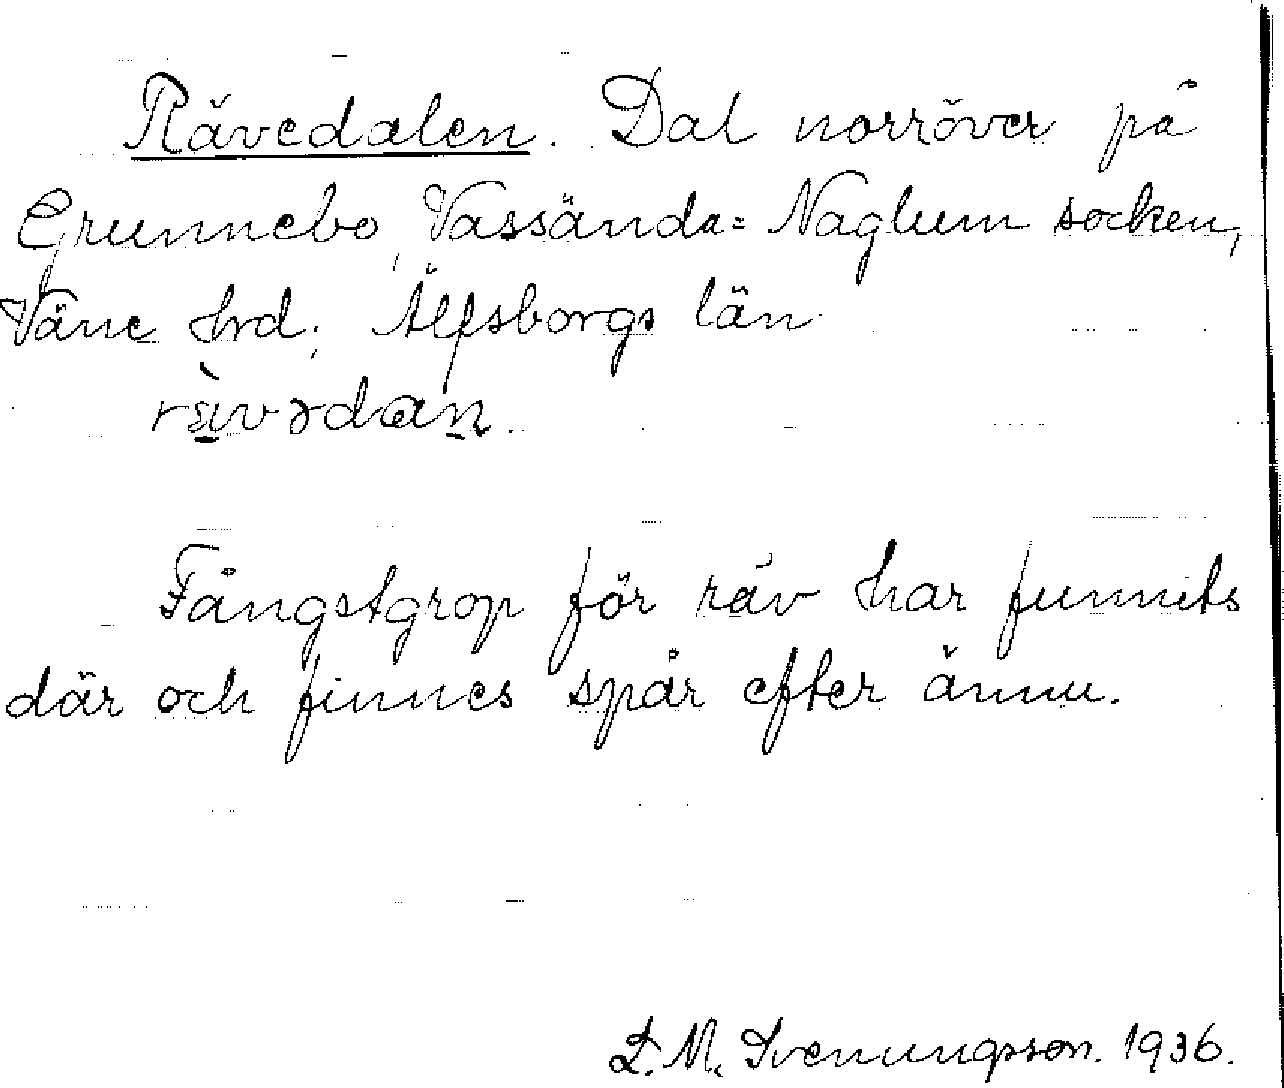 Rävedalen. Dal norröver på
Grunnebo, Vassända=Naglum socken,
Väne hrd, Älfsborgs län.
rä̀vədan.
Fångstgrop för räv har funnits
där och finnes spår efter ännu.
L. M. Svenungsson. 1936.